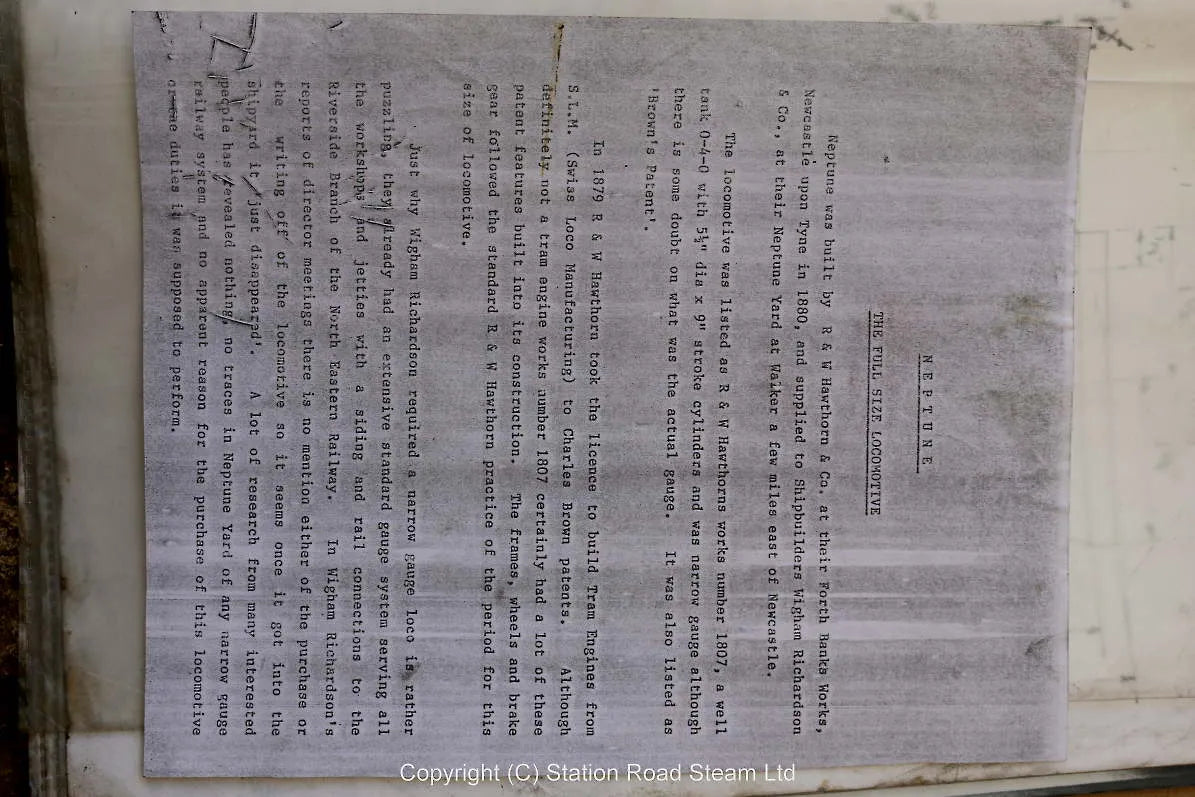 N E P T U N E
THE FULL SIZE LOCOMOTIVE
Neptune was built by R & W Hawthorn & Co. at their Forth Banks Works,
Newcastle upon Tyne in 1880, and supplied to Shipbuilders Wigham Richardson
& Co., at their Neptune Yard at Walker a few miles east of Newcastle.
The locomotive was listed as R & W Hawthorns works number 1807, a well
tank 0-4-0 with 5½" dia x 9" stroke cylinders and was narrow gauge although
there is some doubt on what was the actual gauge. It was also listed as
'Brown's Patent'.
In 1879 R & W Hawthorn took the licence to build Tram Engines from
S.L.M. (Swiss Loco Manufacturing) to Charles Brown patents. Although
definitely not a tram engine works number 1807 certainly had a lot of these
patent features built into its construction. The frames, wheels and brake
gear followed the standard R & W Hawthorn practice of the period for this
size of locomotive.
Just why Wigham Richardson required a narrow gauge loco is rather
puzzling, they already had an extensive standard gauge system serving all
the workshops and jetties with a siding and rail connections to the
Riverside Branch of the North Eastern Railway. In Wigham Richardson's
reports of director meetings there is no mention either of the purchase or
the writing off of the locomotive so it seems once it got into the
shipyard it 'just disappeared'. A lot of research from many interested
people has revealed nothing, no traces in Neptune Yard of any narrow gauge
railway system and no apparent reason for the purchase of this locomotive
or the duties it was supposed to perform.
Copyright (C) Station Road Steam Ltd